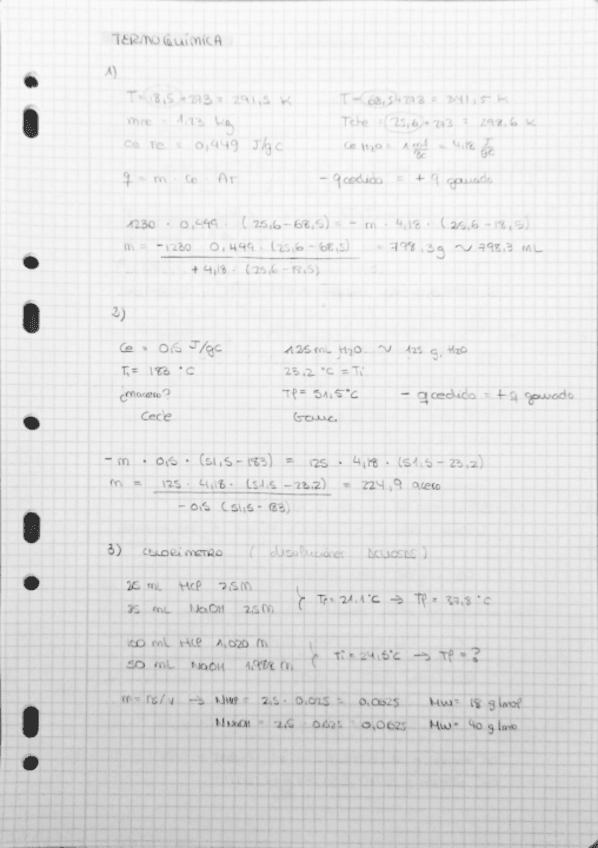 TERMOQUÍMICA
1)
T = 18,5 + 273 = 291,5 K     T = 68,5 + 273 = 341,5 K
mFe = 1.23 kg     Tche = 25,6 + 273 = 298,6 K
Ce Fe = 0,449 J/gC     Ce H2O = 1 = 4,18 J/gC
q = m · Ce · ΔT     - q cedido = + q ganado
1230 · 0,449 · (25,6 - 68,5) = - m · 4,18 · (25,6 - 18,5)
m = -1230 · 0,449 · (25,6 - 68,5) / + 4,18 · (25,6 - 18,5) = 798,3 g ~ 798,3 mL
2)
Ce = 0,5 J/gC     125 mL H2O ~ 125 g H2O
Ti = 183 °C     23,2 °C = Ti
¿macero?     Tf = 51,5 °C     - q cedido = + q ganado
Cede     Gana
- m · 0,5 · (51,5 - 183) = 125 · 4,18 · (51,5 - 23,2)
m = 125 · 4,18 · (51,5 - 23,2) / - 0,5 (51,5 - 183) = 224,9 acero
3) CALORÍMETRO (disoluciones ACUOSAS)
25 mL HCl 2,5 M
25 mL NaOH 2,5 M } Ti = 21.1 °C → Tf = 37,8 °C
100 mL HCl 1,020 M
50 mL NaOH 1,988 M } Ti = 24,5 °C → Tf = ?
m = ns/v → NHCl = 2,5 · 0,025 = 0,0625     MW = 18 g/mol
NNaOH = 2,5 · 0,025 = 0,0625     MW = 40 g/mo